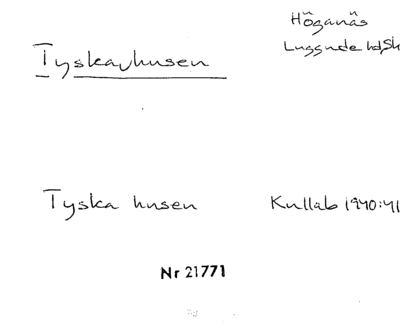 Höganäs
Luggude hd, Sk
Tyska husen
Tyska husen Kullab 1940:41
Nr 21771